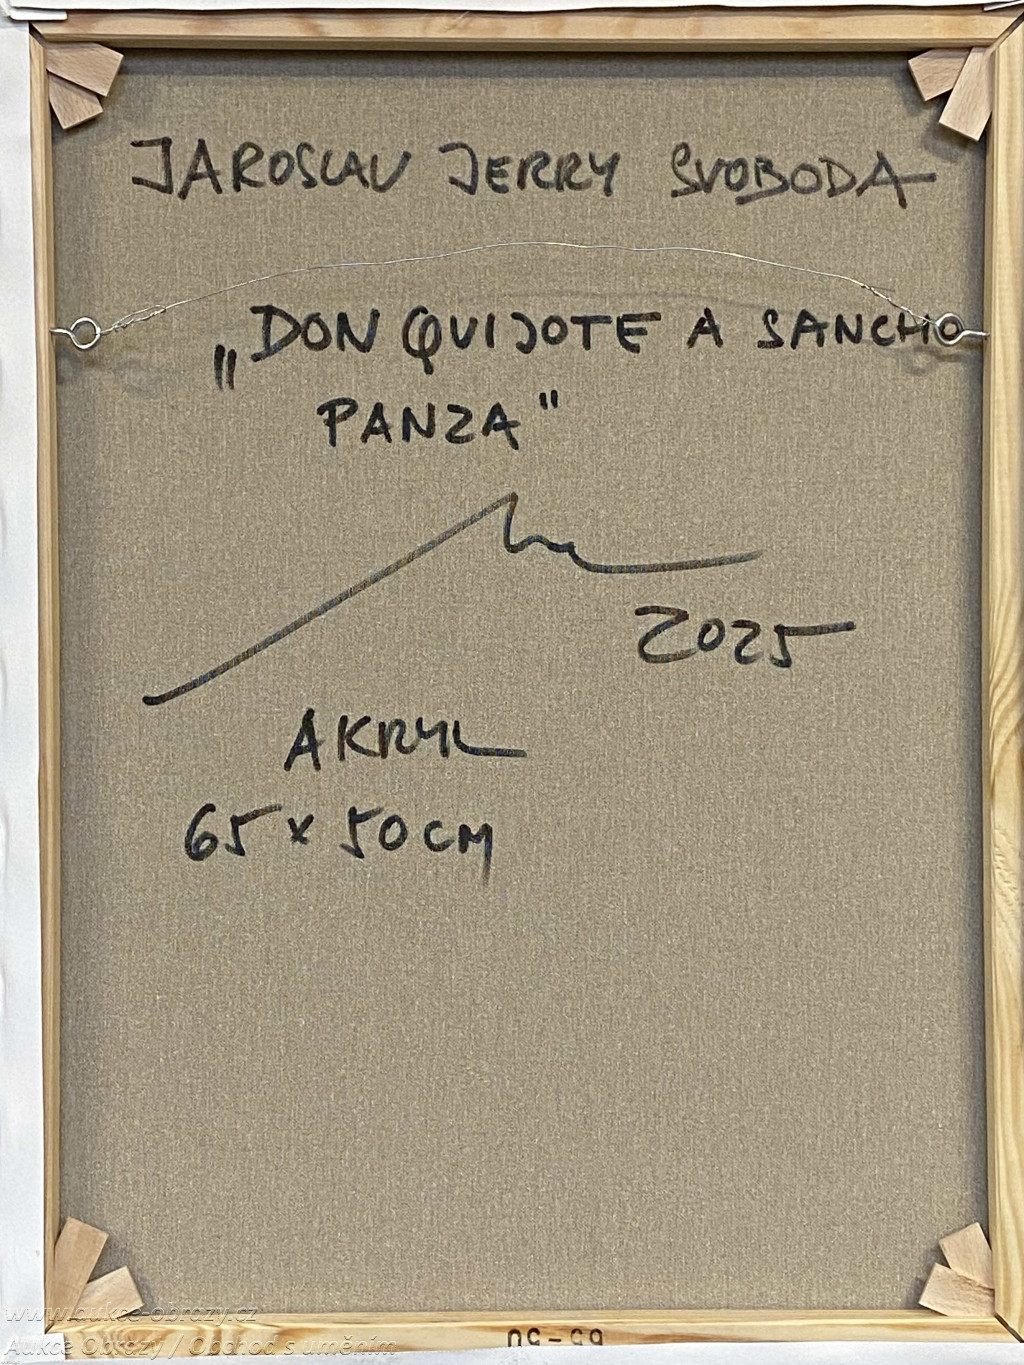 JAROSLAV JERRY SVOBODA
„DON QUIJOTE A SANCHO
PANZA"
2025
AKRYL
65 x 50 CM
www.aukce-obrazy.cz
Aukce Obrazy / Obchod s uměním